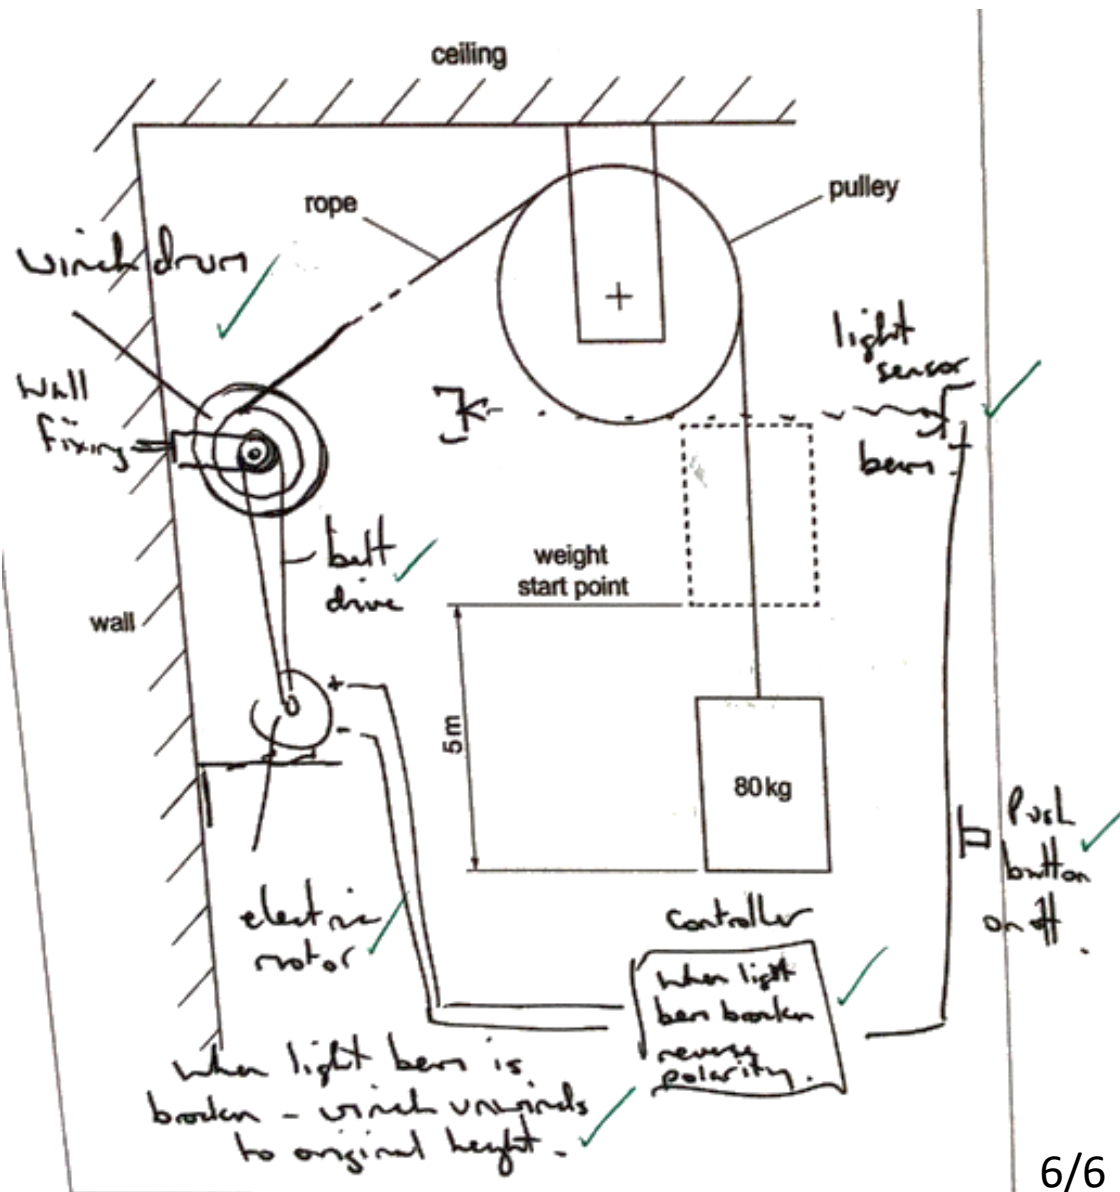 ceiling
rope
pulley
winch drum
light
sensor
wall
fixing
beam
belt
drive
weight
start point
wall
+
-
5m
80kg
Push
button
on
electric
motor
Controller
When light
beam broken
reverse
polarity.
When light beam is
broken - winch unwinds
to original height.
6/6